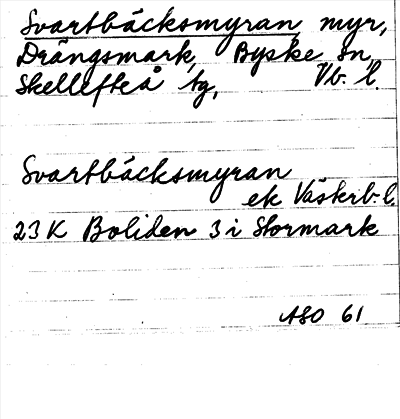 Svartbäcksmyran myr,
Drängsmark, Byske sn,
Skellefteå tg, Vb. l.
Svartbäcksmyran
ek Västerb. l.
23 K Boliden 3 i Stormark
ASO 61